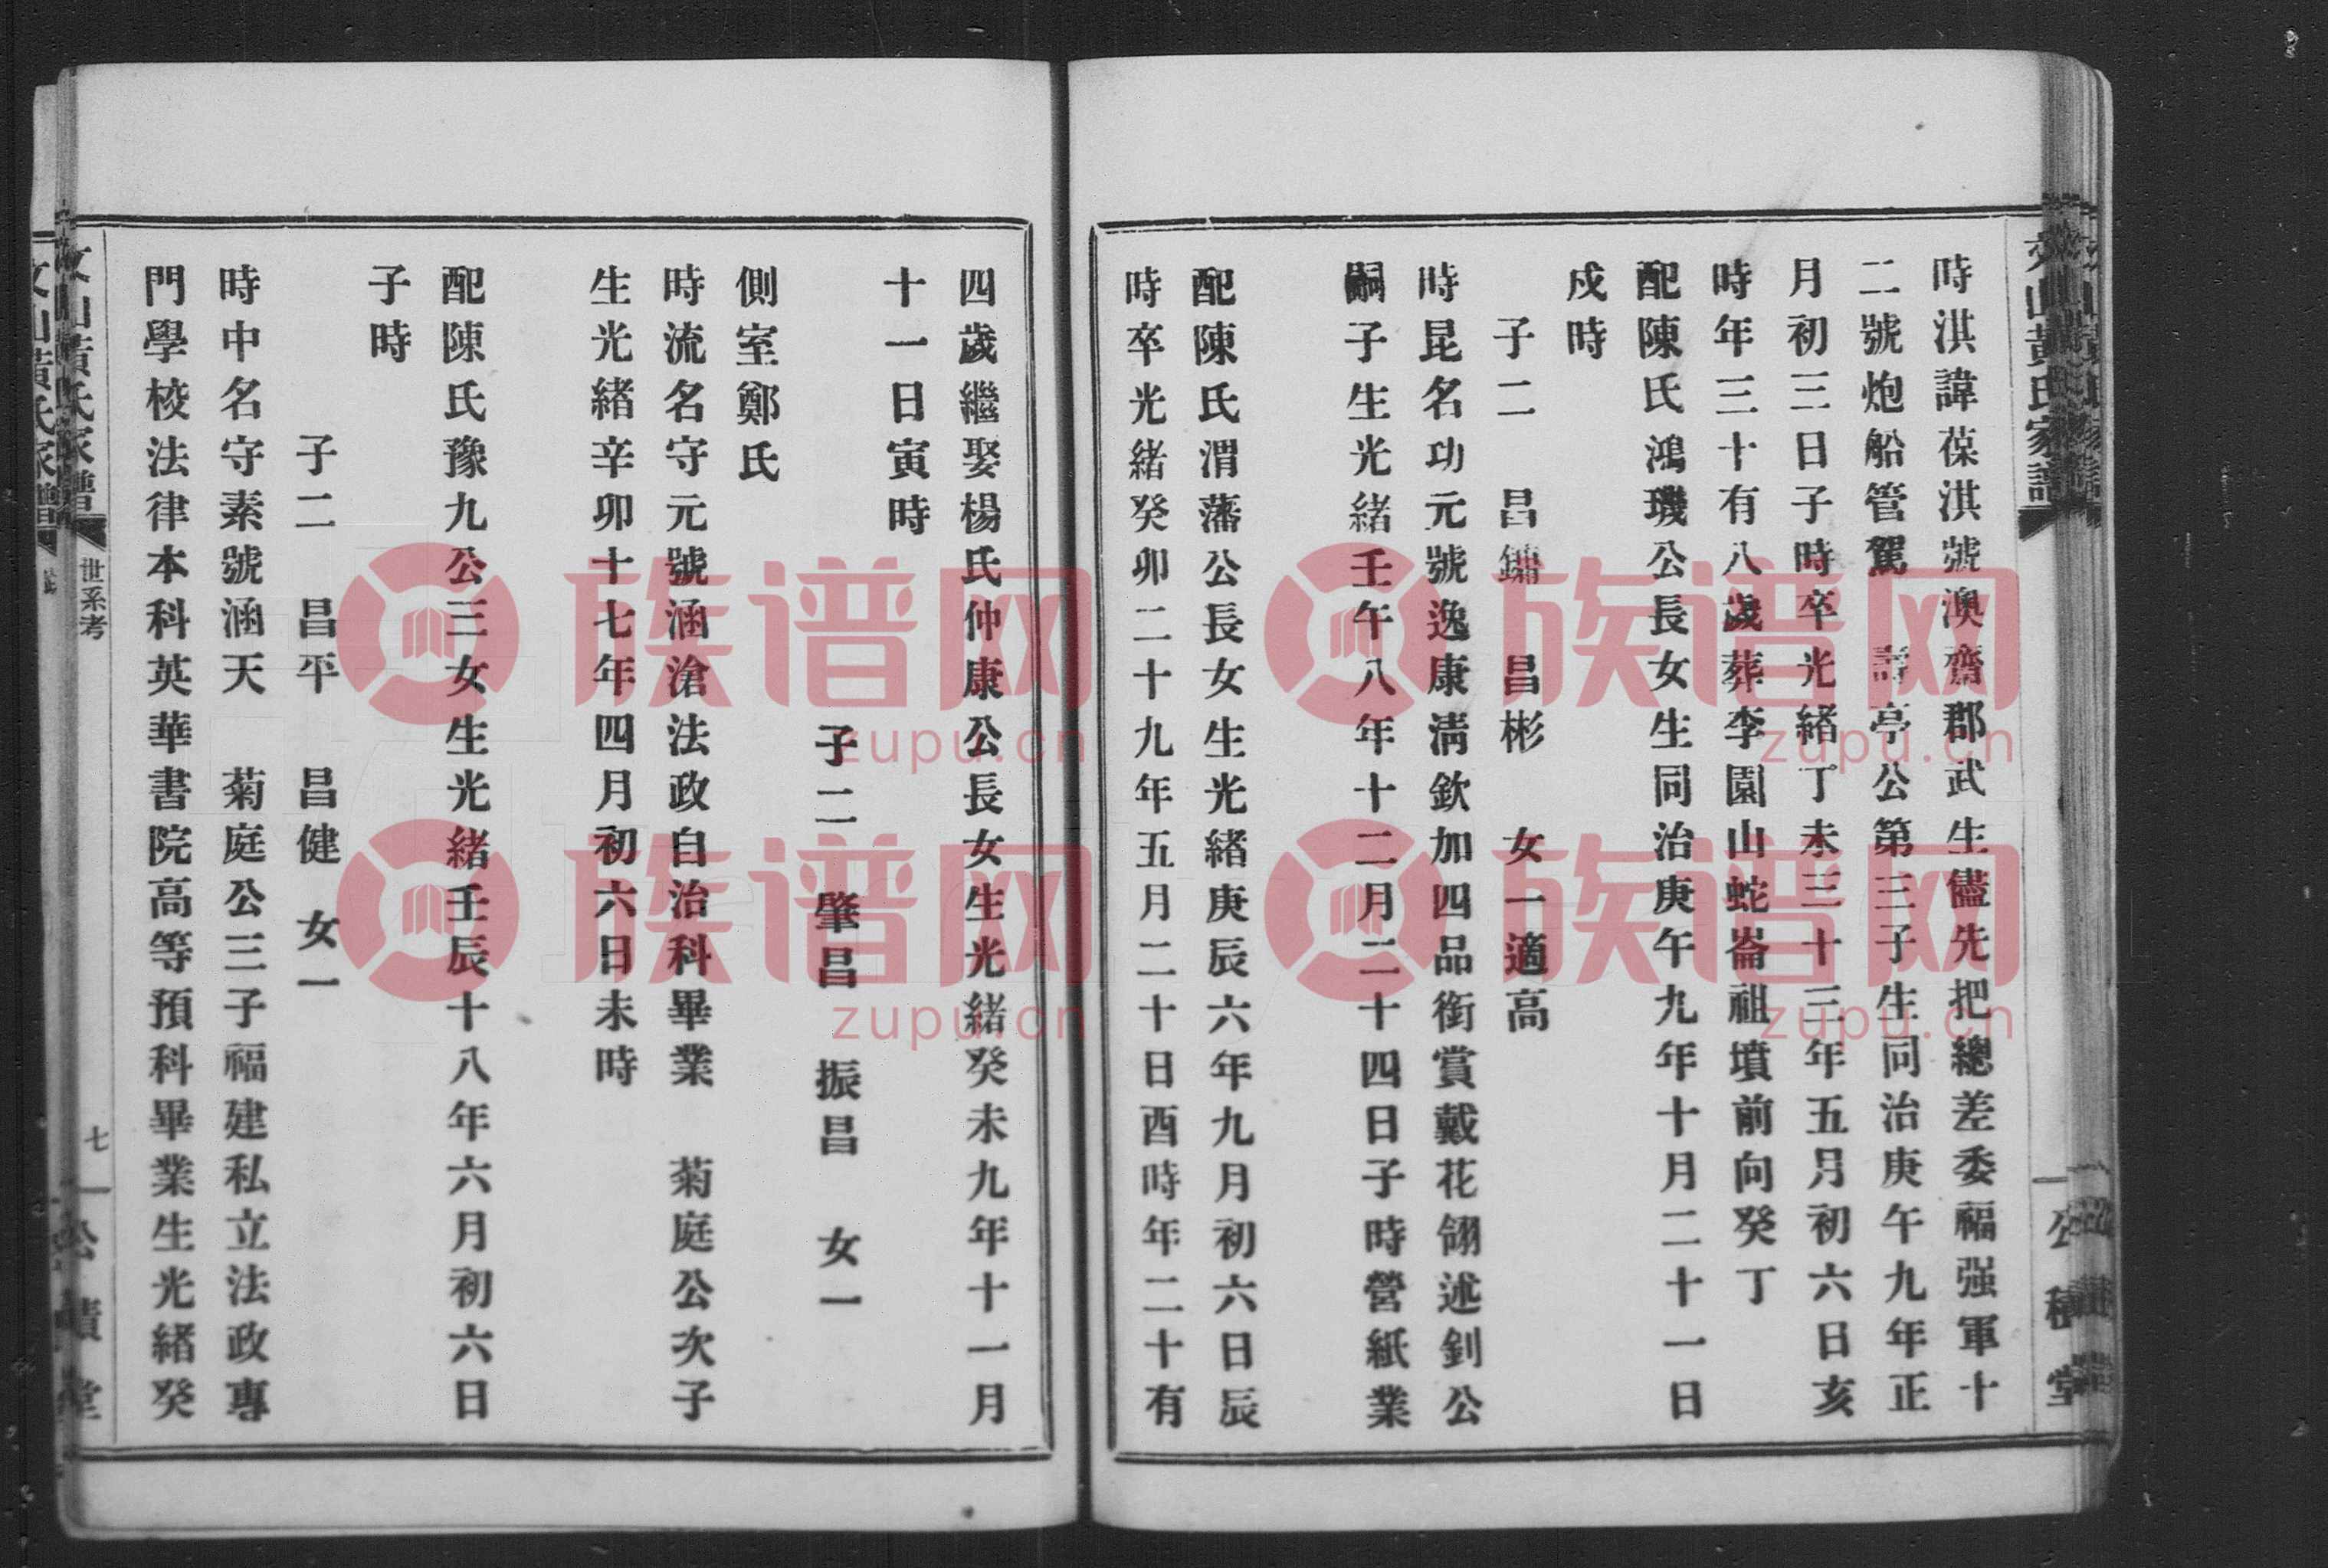 時淇諱葆淇號澳齋郡武生儘先把總差委福强軍十
二號炮船管駕 壽亭公第三子生同治庚午九年正
月初三日子時卒光緒丁未三十三年五月初六日亥
時年三十有八歲葬李園山蛇崙祖墳前向癸丁
配陳氏鴻璣公長女生同治庚午九年十月二十一日
戌時
子二 昌鏽 昌彬 女一適高
時昆名功元號逸康清欽加四品銜賞戴花翎述釗公
嗣子生光緒壬午八年十二月二十四日子時營紙業
配陳氏渭藩公長女生光緒庚辰六年九月初六日辰
時卒光緒癸卯二十九年五月二十日酉時年二十有
四歲繼娶楊氏仲康公長女生光緒癸未九年十一月
十一日寅時
子二 肇昌 振昌 女一
側室鄭氏
時流名守元號涵滄法政自治科畢業 菊庭公次子
生光緒辛卯十七年四月初六日未時
配陳氏豫九公三女生光緒壬辰十八年六月初六日
子時
子二 昌平 昌健 女一
時中名守素號涵天 菊庭公三子福建私立法政專
門學校法律本科英華書院高等預科畢業生光緒癸
世系考
七
族谱网
zupu.cn
族谱网
zupu.cn
族谱网
zupu.cn
族谱网
zupu.cn